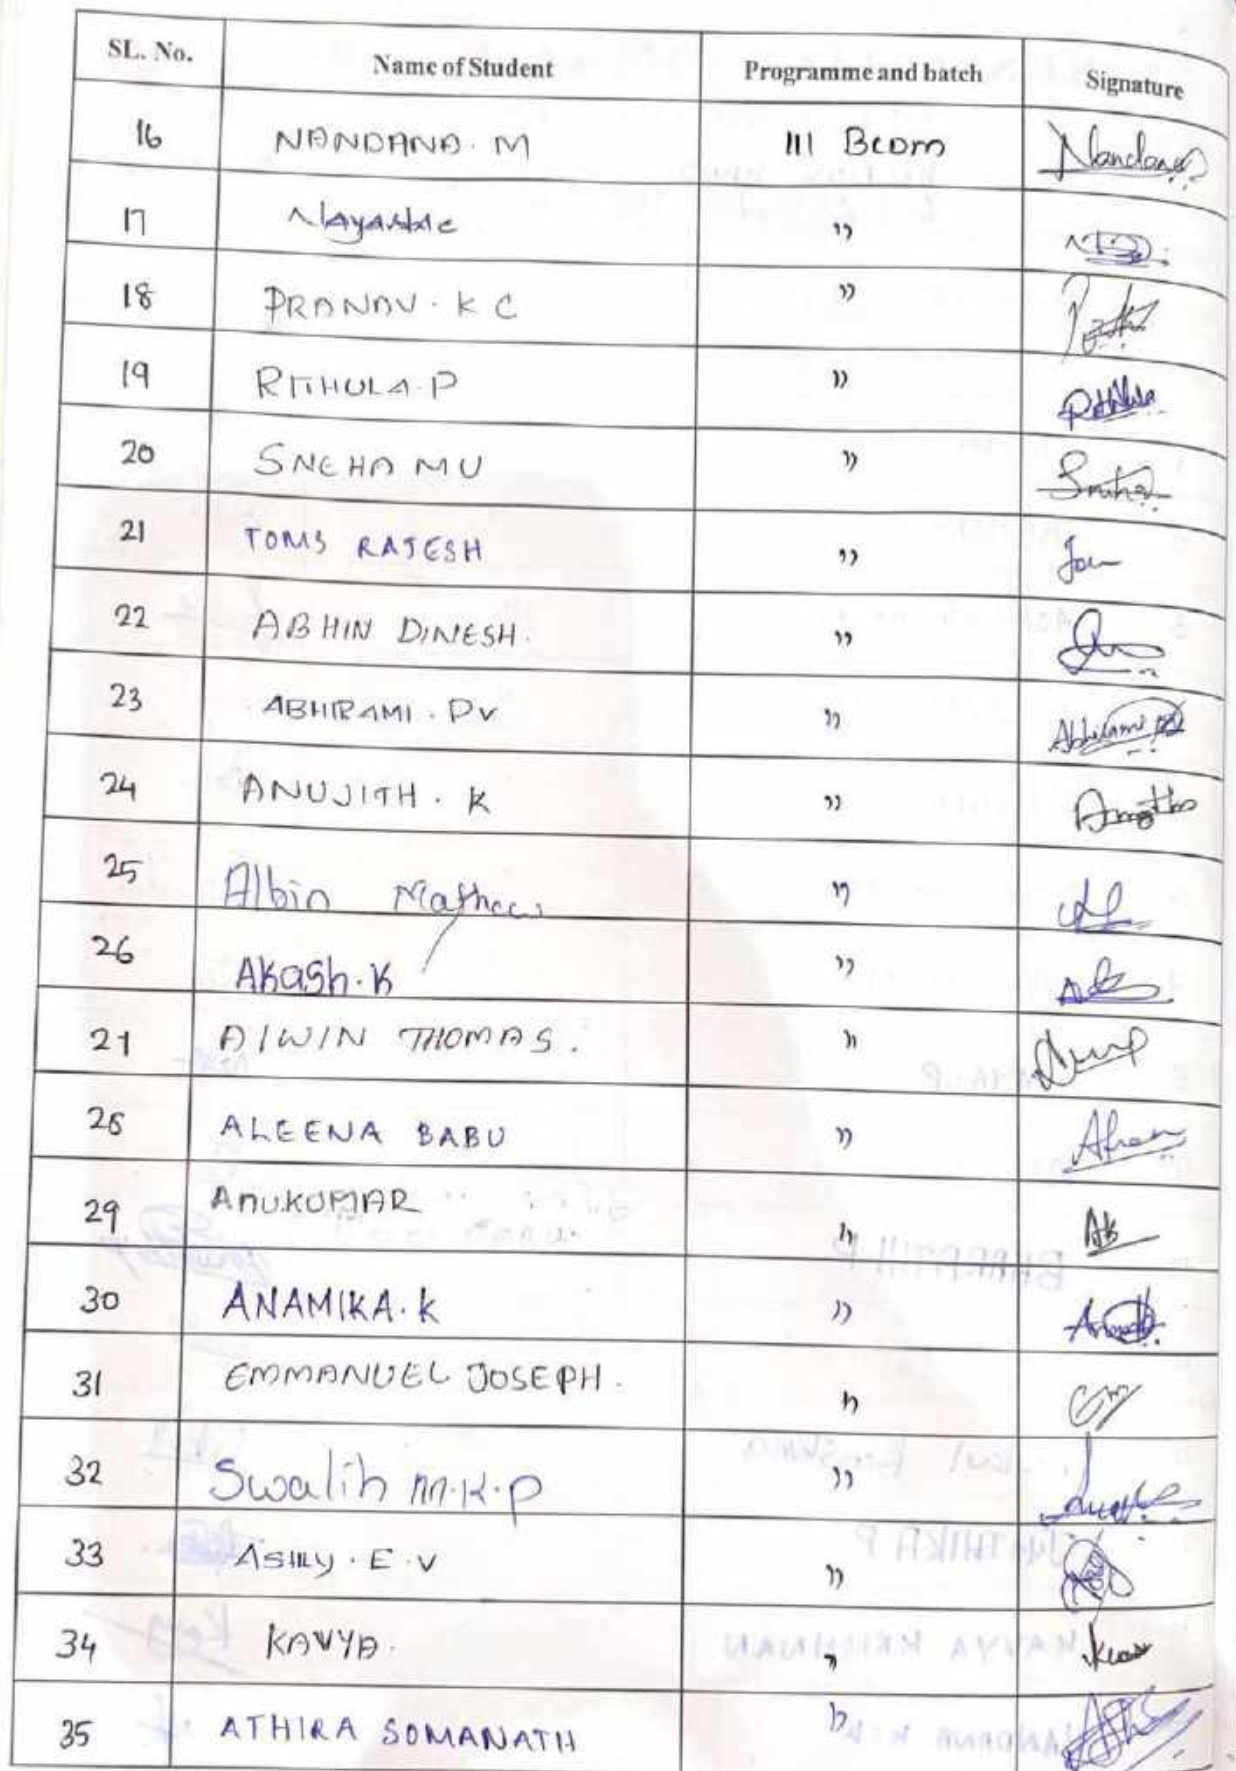 SL. No. Name of Student Programme and batch Signature
16 NANDANA. M III Bcom Nandana
17 ,,
18 PRANAV. K C ,,
19 RITHULA. P ,, Rithula
20 SNEHA MU ,, Sneha
21 TOMS RAJESH ,, Tom
22 ABHIN DINESH. ,,
23 ABHIRAMI. PV ,, Abhirami
24 ANUJITH. K ,,
25 Albin Mathew ,,
26 Akash. K ,,
27 ALWIN THOMAS. ,,
28 ALEENA BABU ,,
29 ANUKUMAR ,, AK
30 ANAMIKA. K ,,
31 EMMANUEL JOSEPH. ,,
32 Swalih M.K.P ,,
33 ASHLY. E. V ,,
34 KAVYA. ,,
35 ATHIRA SOMANATH ,,